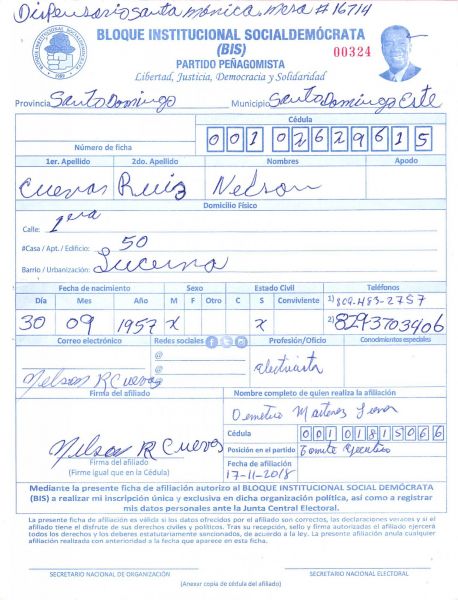 Dispensario Santa Mónica. Mesa # 16714
BLOQUE INSTITUCIONAL SOCIALDEMÓCRATA
(BIS)
00324
PARTIDO PEÑAGOMISTA
Libertad, Justicia, Democracia y Solidaridad
BLOQUE INSTITUCIONAL SOCIALDEMÓCRATA
Provincia Santo Domingo Municipio Santo Domingo Este
Cédula
Número de ficha 001 02629615
1er. Apellido 2do. Apellido Nombres Apodo
Cuevas Ruiz Nelson
Domicilio Físico
Calle: 1era
#Casa / Apt. / Edificio: 50
Barrio / Urbanización: Lucerna
Fecha de nacimiento Sexo Estado Civil Teléfonos
Día Mes Año M F Otro C S Conviviente 1) 809-483-2757
30 09 1957 X X 2) 8293703406
Correo electrónico Redes sociales Profesión/Oficio Conocimientos especiales
@
@
Nelson R Cuevas
Firma del afiliado Nombre completo de quien realiza la afiliación
Demetrio
Cédula 001 01815066
Nelson R Cuevas Posición en el partido Comite Ejecutivo
Firma del afiliado Fecha de afiliación
(Firme igual que en la Cédula) 17-11-2018
Mediante la presente ficha de afiliación autorizo al BLOQUE INSTITUCIONAL SOCIAL DEMÓCRATA
(BIS) a realizar mi inscripción única y exclusiva en dicha organización política, así como a registrar
mis datos personales ante la Junta Central Electoral.
La presente ficha de afiliación es válida si los datos ofrecidos por el afiliado son correctos, las declaraciones veraces y si el
afiliado tiene el disfrute de sus derechos civiles y políticos. Tras su recepción, sello y firma autorizadas el afiliado ejercerá
todos los derechos y los deberes estatutariamente sancionados, de acuerdo a la ley. La presente afiliación anula cualquier
afiliación realizada con anterioridad a la fecha que aparece en esta ficha.
SECRETARIO NACIONAL DE ORGANIZACIÓN SECRETARIO NACIONAL ELECTORAL
(Anexar copia de cédula del afiliado)